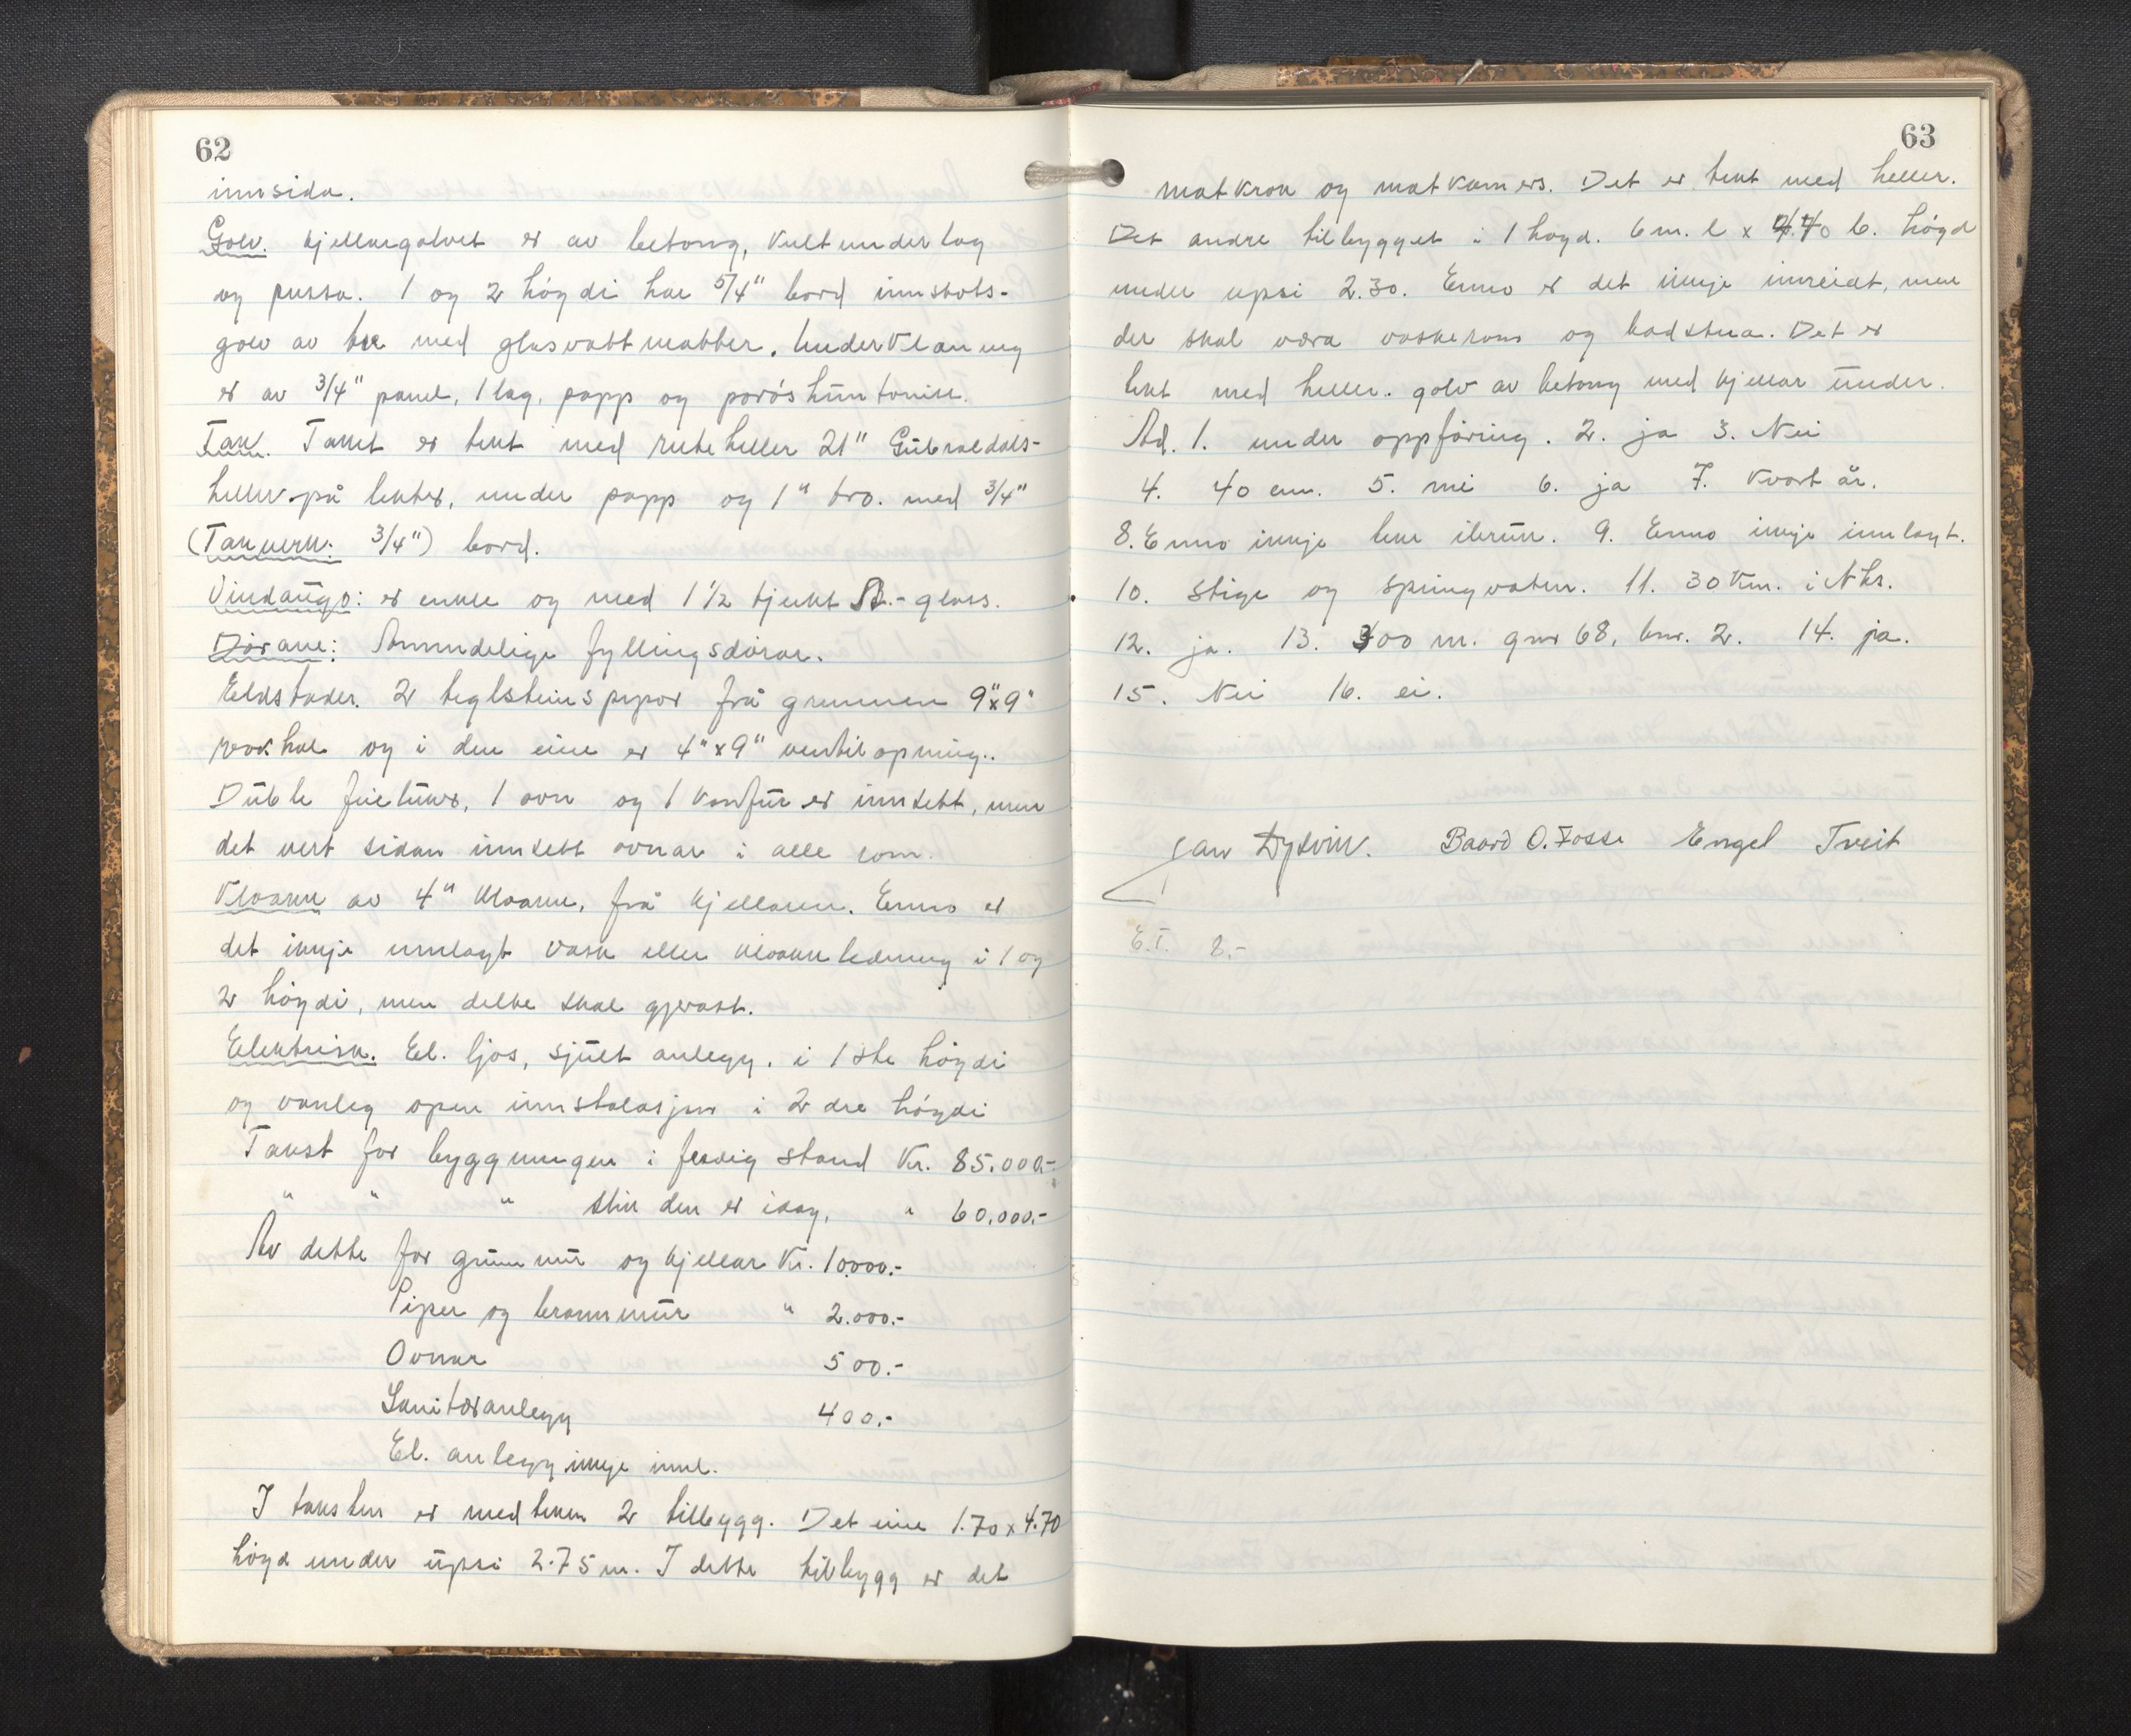 62
innsida.
Golv. Kjellargolvet er av betong, kultunderlag
og pussa. 1 og 2 högdi har 5/4" bord innskots-
golv av tre med glasvattmatter. Underkledning
er av 3/4" panel, 1 lag. papp og porös huntonitt.
Tak. Taket er tekt med ruteheller 21" Gudbrandsdals-
heller på lekter, under papp og 1" tro. med 3/4"
(Takverk: 3/4") bord.
Vindaugo: er enkle og med 1 1/2 tjukt B.- glass.
Dörane: Almindelige fyllingsdörar.
Eldstader. 2 teglsteinspipor frå grunnen 9"x9"
rökhol og i den eine er 4"x9" ventilopning..
Duble feieluker, 1 ovn og 1 komfur er innsett, men
det vert sidan innsett ovnar i alle rom.
Kloakk av 4" kloakk, frå kjellaren. Enno er
det ikkje innlagt vask eller kloakkledning i 1 og
2 högdi, men dette skal gjerast.
Elektrisk. El. ljos, sjult anlegg. i 1ste högdi
og vanleg open innstalasjon i 2dre högdi
Takst for byggningen i ferdig stand Kr. 85.000.-
" " " slik den er idag, " 60.000.-
Av dette for grunnmur og kjellar Kr. 10000.-
Piper og brannmur " 2.000.-
Ovnar 500.-
Sanitæranlegg 400.-
El. anlegg ikkje inkl.
I taksten er medteken 2 tilbygg. Det eine 1.70 x 4.70
högd under upsi 2.75 m. I dette tilbygg er det
63
matkrok og matkamers. Det er tekt med heller.
Det andre tilbygget i 1 högd. 6 m. l x 4.40 b. högd
under upsi 2.30. Enno er det ikkje innreidt, men
der skal væra vaskerom og badstua. Det er
tekt med heller. golv av betong med kjellar under.
Ad. 1. under oppföring. 2. ja 3. Nei
4. 40 cm. 5. nei 6. ja 7. Kvart år.
8. Enno ikkje tek ibruk. 9. Enno ikkje innlagt.
10. Stige og springvatn. 11. 30 km. i Nhs.
12. ja. 13. 300 m. gnr 68, bnr. 2. 14. ja.
15. Nei 16. ei.
Jan Dysvik. Baard O. Fosse Engel Tveit
E.T. 8.-